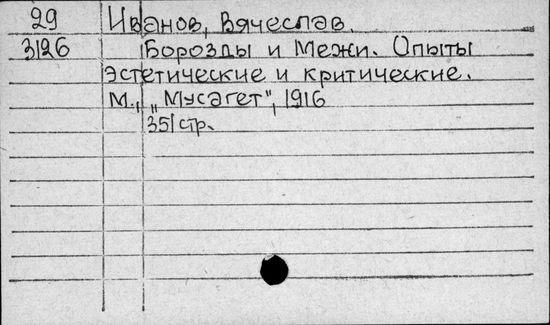 29 Иванов, Вячеслав.
3126 Борозды и Межи. Опыты
эстетические и критические.
М., „Мусагет", 1916
351 стр.